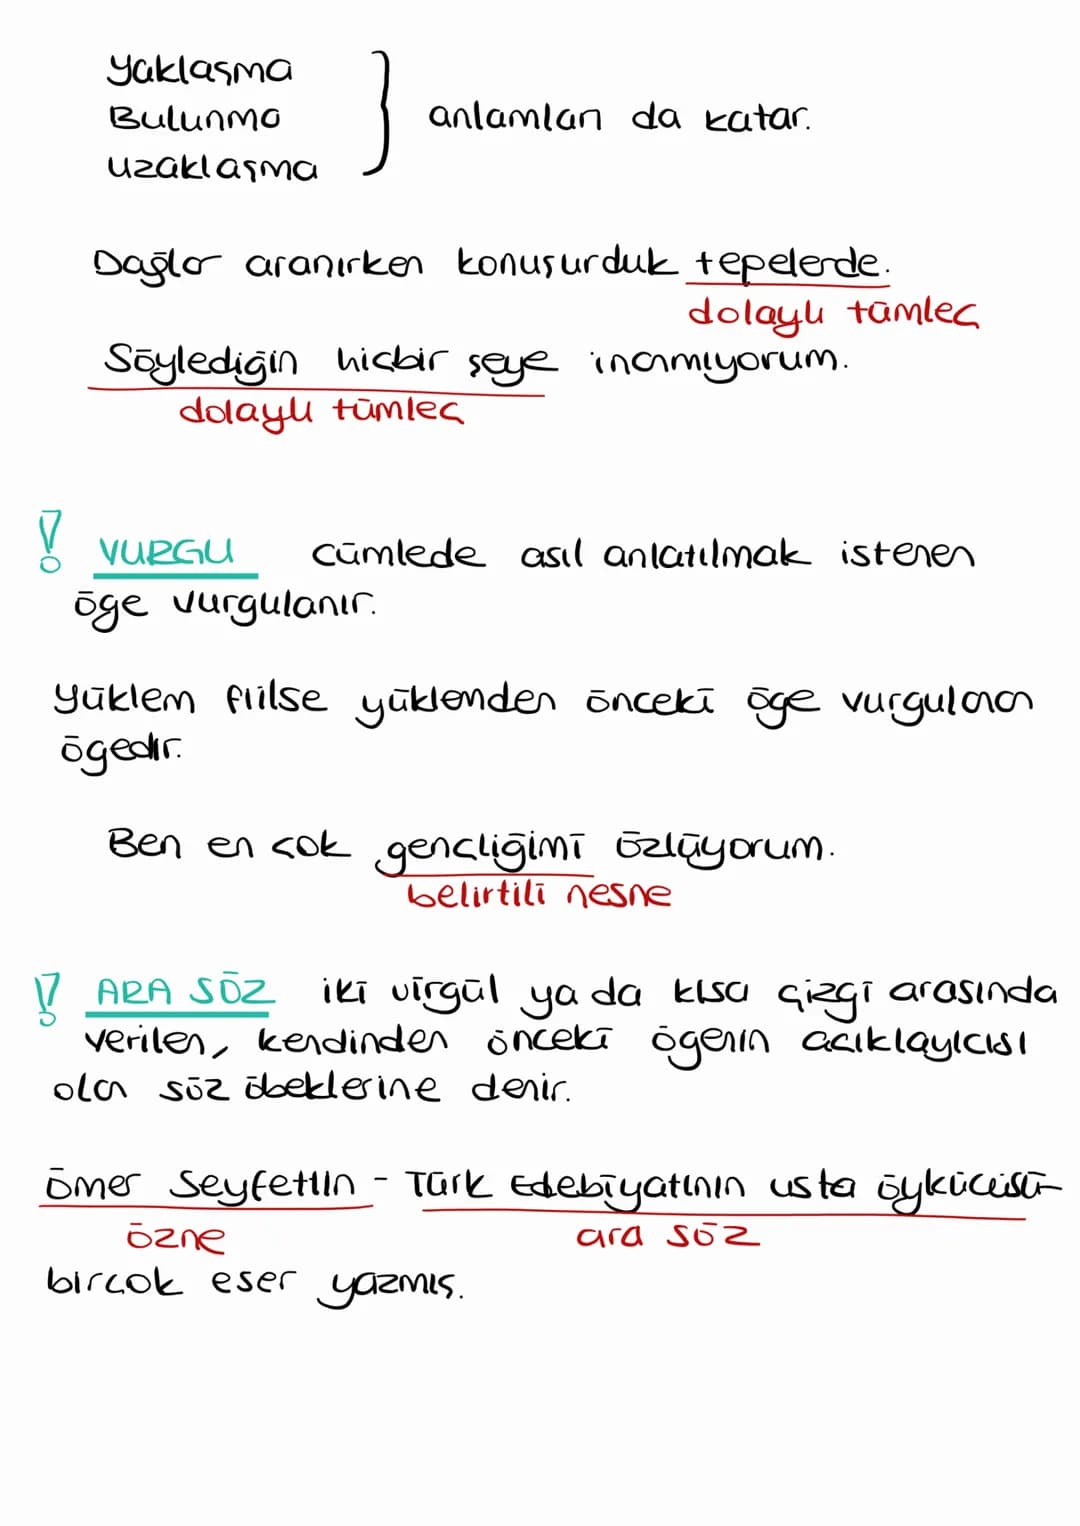 Yaklaşma
Bulunma
uzaklaşma
anlamları da katar.
Dağlar aranırken konuşurduk tepelerde.
dolaylı tümleç
Söylediğin hiçbir şeye inanmıyorum.
dolaylı tümleç
! VURGU cümlede asıl anlatılmak istenen
öge vurgulanır.
Yüklem fiilse yüklemden önceki öge vurgulanan
ögedir.
Ben en çok gençliğimi özlüyorum.
belirtili nesne
! ARA SÖZ iki virgül ya da kısa çizgi arasında
verilen, kendinden önceki ögenin açıklayıcısı
olan söz öbeklerine denir.
Ömer Seyfettin - Türk Edebiyatının usta öykücüsü-
özne ara söz
birçok eser yazmış.